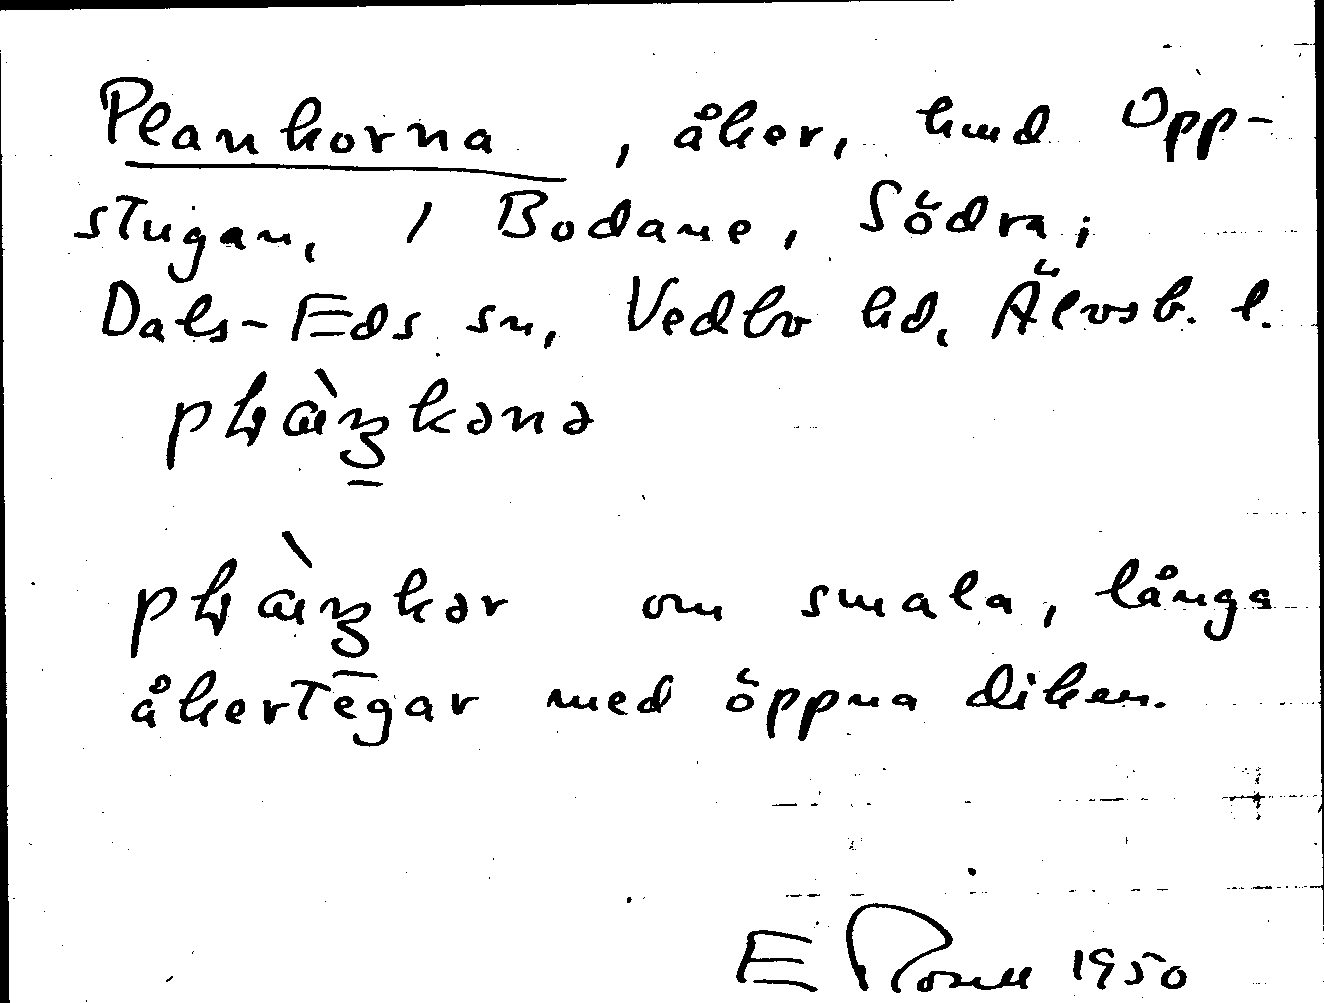 Plankorna, åker, hmd Upp-
stugan, 1 Bodane, Södra;
Dals-Eds sn, Vedbo hd, Älvsb. l.
om smala, långa
åkertegar med öppna diken.
E Rosell 1950